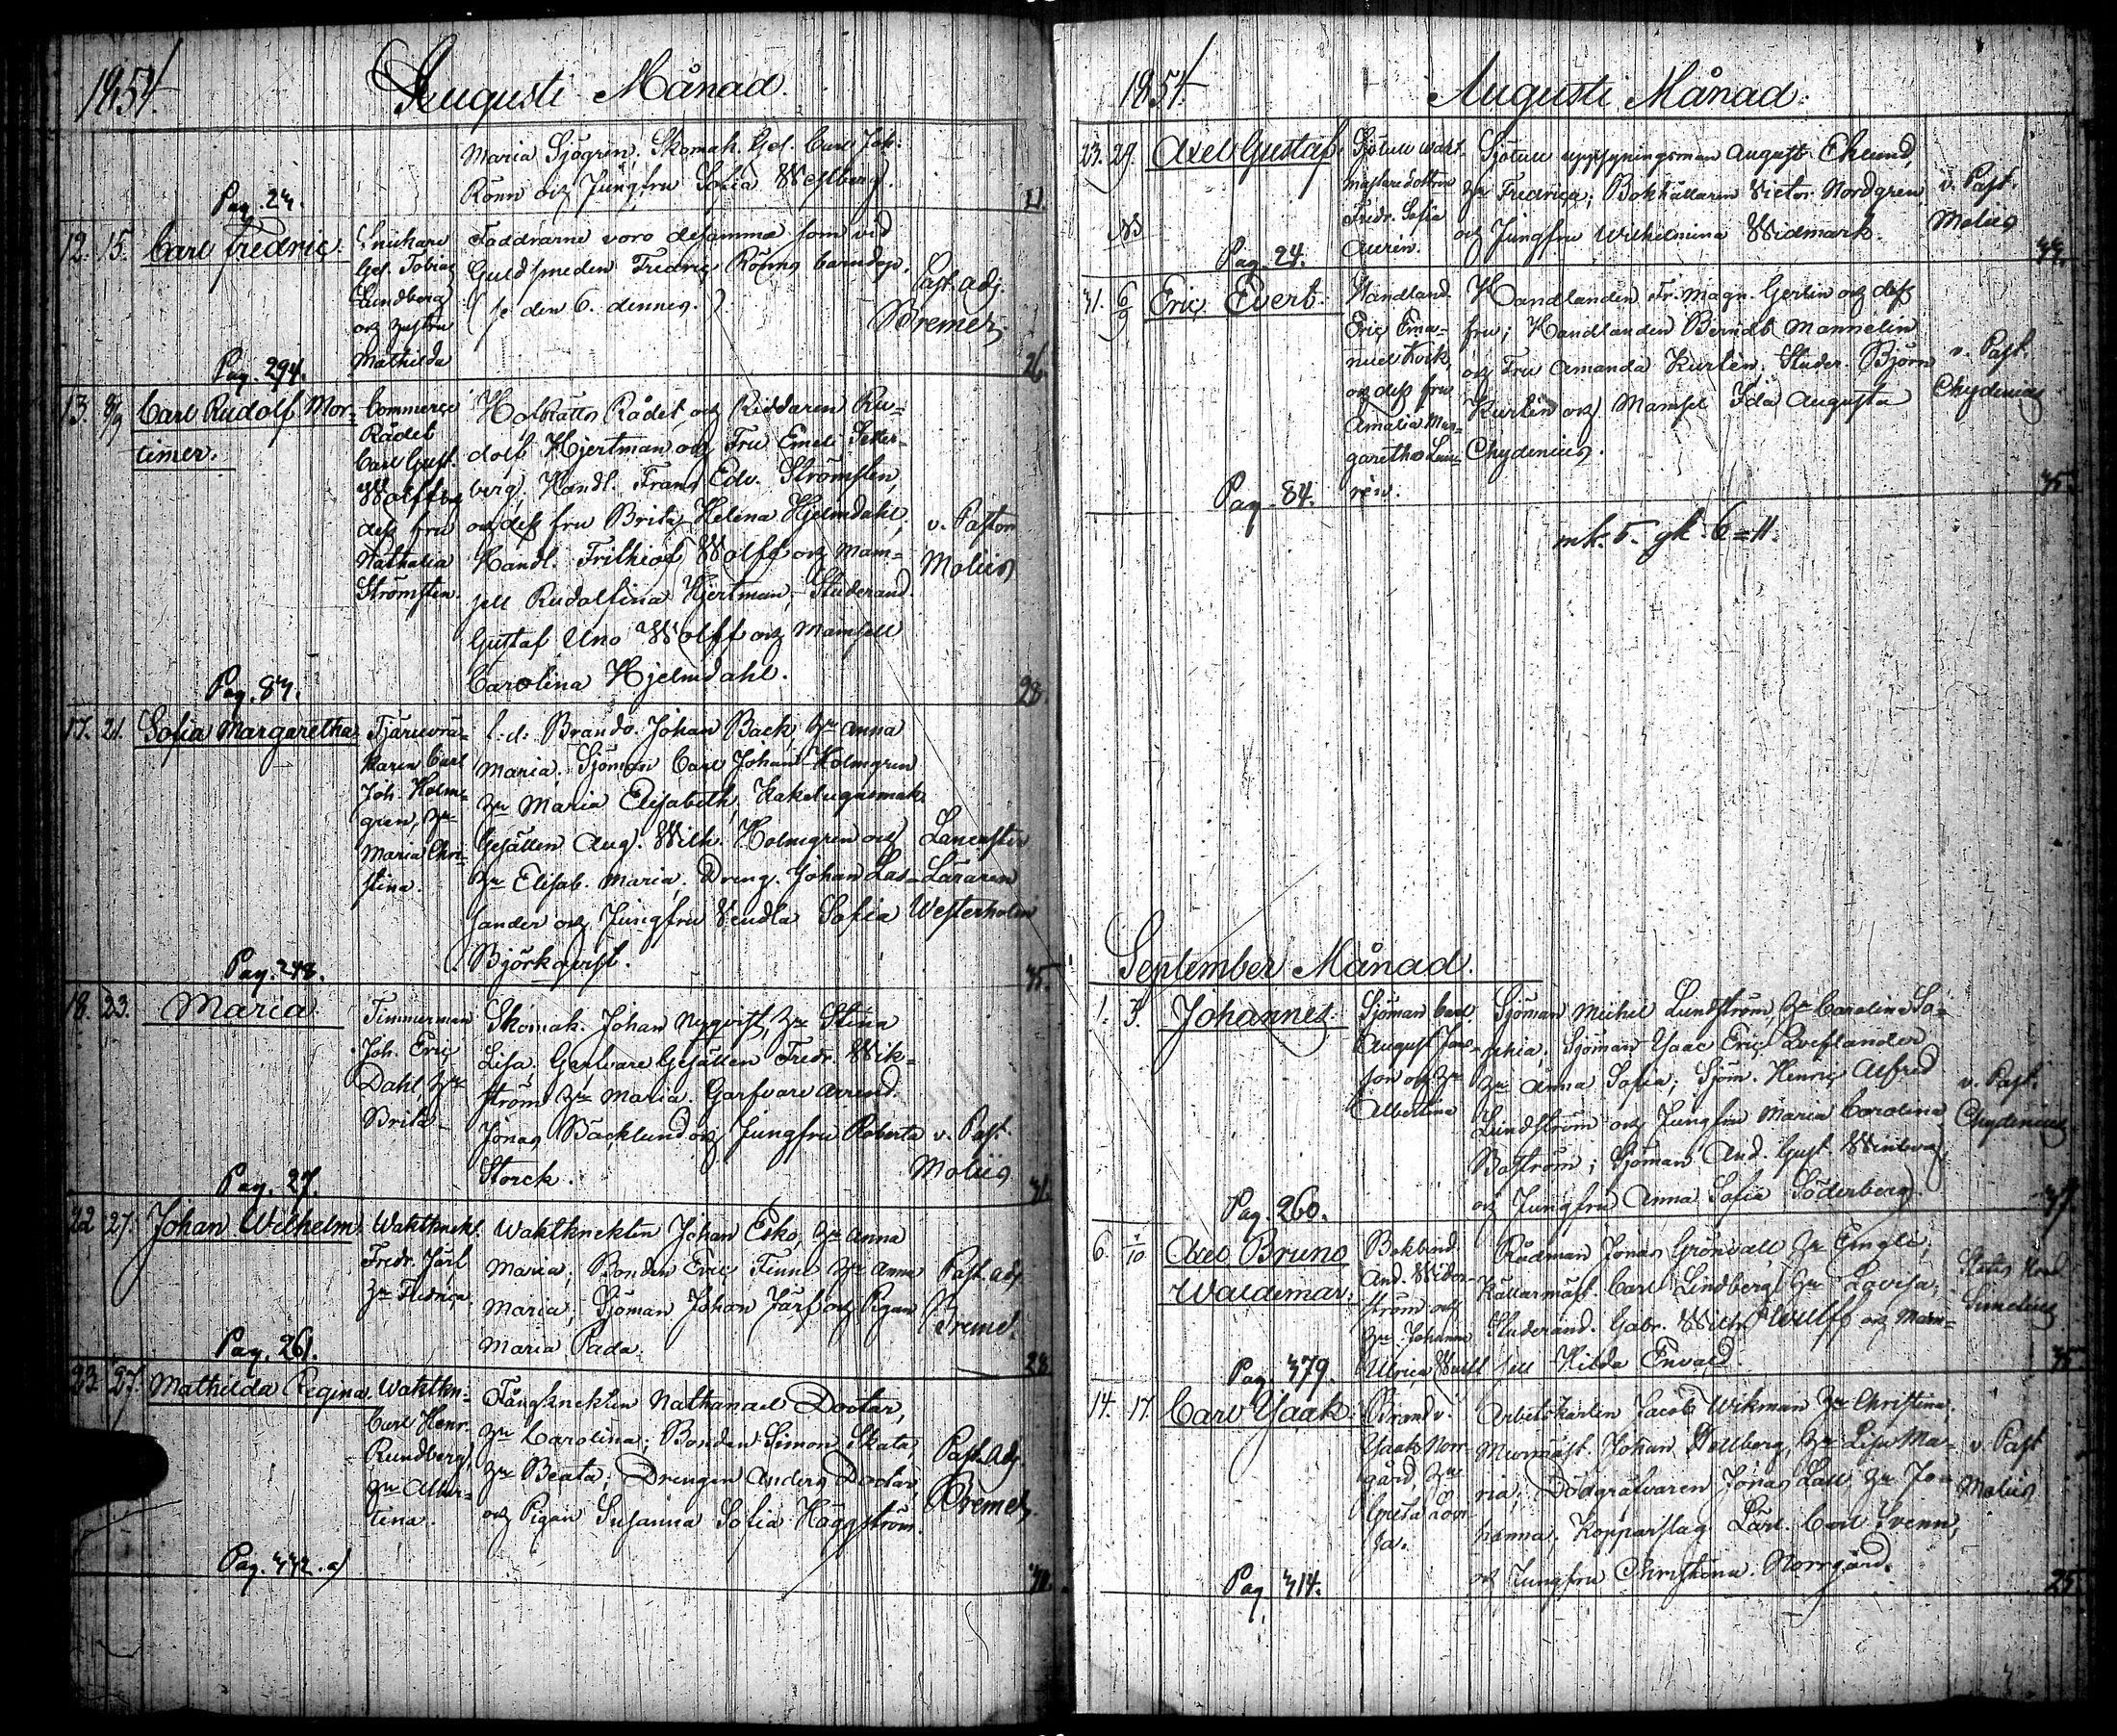 1854. Augusti Månad.
Maria Sjögren; Skomak. Ges. Carl Joh:
Rönn och Jungfru Sofia Westberg.
Pag. 24.
12. 15. Carl Fredric.
Snickare
Ges. Tobias
Lundberg
och hustru
Mathilda
Faddrarne voro desamma som vid
Guldsmeden Fredric Rönns barndop.
(se den 6. dennes.)
Past. adj.
Bremer.
Pag. 294.
26.
13. 8/9 Carl Rudolf Mor-
timer.
Commerce
Rådet
Carl Gust.
Wolff och
dess fru
Nathalia
Strömsten.
HofRätts Rådet och Riddaren Ru-
dolf Hjertman och Fru Emeli Seter-
berg; Handl. Frans Edv. Strömsten,
och dess fru Brita Helena Hjelmdahl;
Handl. Frithiof Wolff och Mam-
sell Rudolfina Hjertman; Studerand.
Gustaf Uno Wolff och Mamsell
Carolina Hjelmdahl.
v. Pastor
Moliis
28
17. 21. Sofia Margaretha
Tjäruvrä-
karen Carl
Joh. Holm-
gren, Hu
Maria Chri-
stina.
f. d. Brandv. Johan Back, Hu Anna
Maria; Sjöman Carl Johan Holmgren
Hu Maria Elisabeth; Kakelugnsmak.
Gesällen Aug. Wilh. Holmgren och
Hu Elisab. Maria; Dreng. Johan Las-
sander och Jungfru Vendla Sofia
Björkqvist.
Lancaster
Läraren
Westerholm
Pag. 248.
35.
18. 23. Maria.
Timmerman
Joh. Eric
Dahl, Hu
Brita
Skomak. Johan Nyqvist, Hu Stina
Lisa; Garfvare Gesällen Fredr. Wik-
ström Hu Maria; Garfvare Arrend.
Jonas Bäcklund och Jungfru Roberta
Storck.
v. Past.
Moliis
Pag. 27.
31.
22 27. Johan Wilhelm.
Waktknekt.
Fredr. Järf
Hu Fredrica
Waktknekten Johan Esko, Hu Anna
Maria; Bonden Eric Finne Hu Anna
Maria; Sjöman Johan Järf och Pigan
Maria Pada.
Past. adj.
Bremer.
Pag. 261.
28
23. 27. Mathilda Regina.
Waktkn-
Carl Henr.
Rundberg,
Hu Alber-
tina.
Fångknekten Nathanael Doctar,
Hu Carolina; Bonden Simon Skata,
Hu Beata; Drengen Anders Doctar,
och Pigan Susanna Sofia Häggström.
Past. Adj.
Bremer.
Pag. 332. a)
1854. Augusti Månad.
23. 29. Axel Gustaf
Sjötull vakt-
mästare dottren
Fredr. Sofia
Aurén.
Sjötull uppsyningsman August Eklund,
Hu Fredrica; Bokhållaren Victor Nordgren
och Jungfru Wilhelmina Widmark.
v. Past.
Moliis
Pag. 24.
31. 6/9 Eric Evert.
Handland.
Eric Ema-
nuel Kock,
och dess fru
Amalia Mar-
garetha Lau-
rén.
Handlanden Fr. Magn. Gerlin och dess
fru; Handlanden Berndt Mannelin
och Fru Amanda Kurtén; Studer. Björn
Kurtén och Mamsel Ida Augusta
Chydenius.
v. Past.
Chydenius
Pag. 84.
35.
mk. 5. gk. 6 = 11.
September Månad.
1. 3. Johannes.
Sjöman Carl
August Jans-
son och Hu
Albertina
Sjöman Michel Lundström, Hu Carolina So-
phia; Sjöman Ysaac Eric Roeslander
Hu Anna Sofia; Sjöm. Henric Alfred
Lundström och Jungfru Maria Carolina
Boström; Sjöman And. Gust. Winberg,
och Jungfru Anna Sofia Söderberg.
v. Past.
Chydenius
Pag. 260.
6. 1/10 Axel Bruno
Waldemar.
Bokbind.
And. Widor-
ström och
Hu Johanna
Ulrica
Rådman Jonas Grönvall Hu Engla;
Källarmäst. Carl Lindberg Hu Lovisa;
Studerand. Gabr. Wilh. Wulff och Mam-
sell Hilda Envald.
Simelius
Pag. 379.
35
14. 17. Carl Ysaak.
Brandv.
Ysaak Norr-
gård, Hu
Greta Lovi-
sa.
Arbetskarlen Jacob Wikman Hu Christina;
Murmäst. Johan Hellberg, Hu Lisa Ma-
ria; Dödgräfvaren Jonas Lall Hu Jo-
hanna; Kopparslag. Lärl. Carl Svenn,
och Jungfru Christina Norrgård.
v. Past
Moliis
Pag. 314.
25.